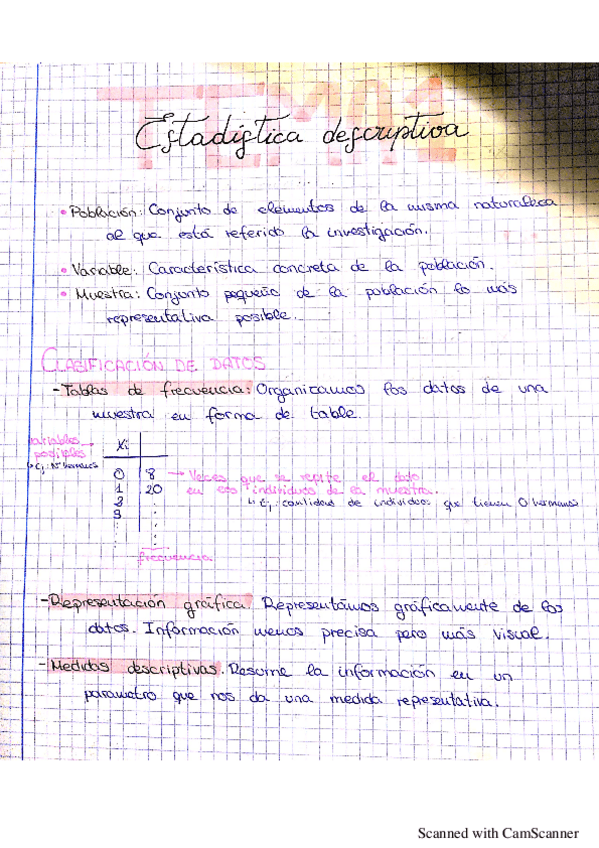 TEMA 1
Estadística descriptiva
• Población: Conjunto de elementos de la misma naturaleza
al que está referido la investigación.
• Variable: Característica concreta de la población.
• Muestra: Conjunto pequeño de la población lo más
representativa posible.
CLASIFICACIÓN DE DATOS
- Tablas de frecuencia: Organizamos los datos de una
muestra en forma de table.
variables → Xi
posibles
↳ Ej: Nº hermanos
0 8 → Veces que se repite el dato
1 20 en los individuos de la muestra.
2 ↳ Ej: cantidad de individuos que tienen 0 hermanos
3
frecuencia
- Representación gráfica. Representamos gráficamente de los
datos. Información menos precisa pero más visual.
- Medidas descriptivas. Resume la información en un
parametro que nos da una medida representativa.
Scanned with CamScanner